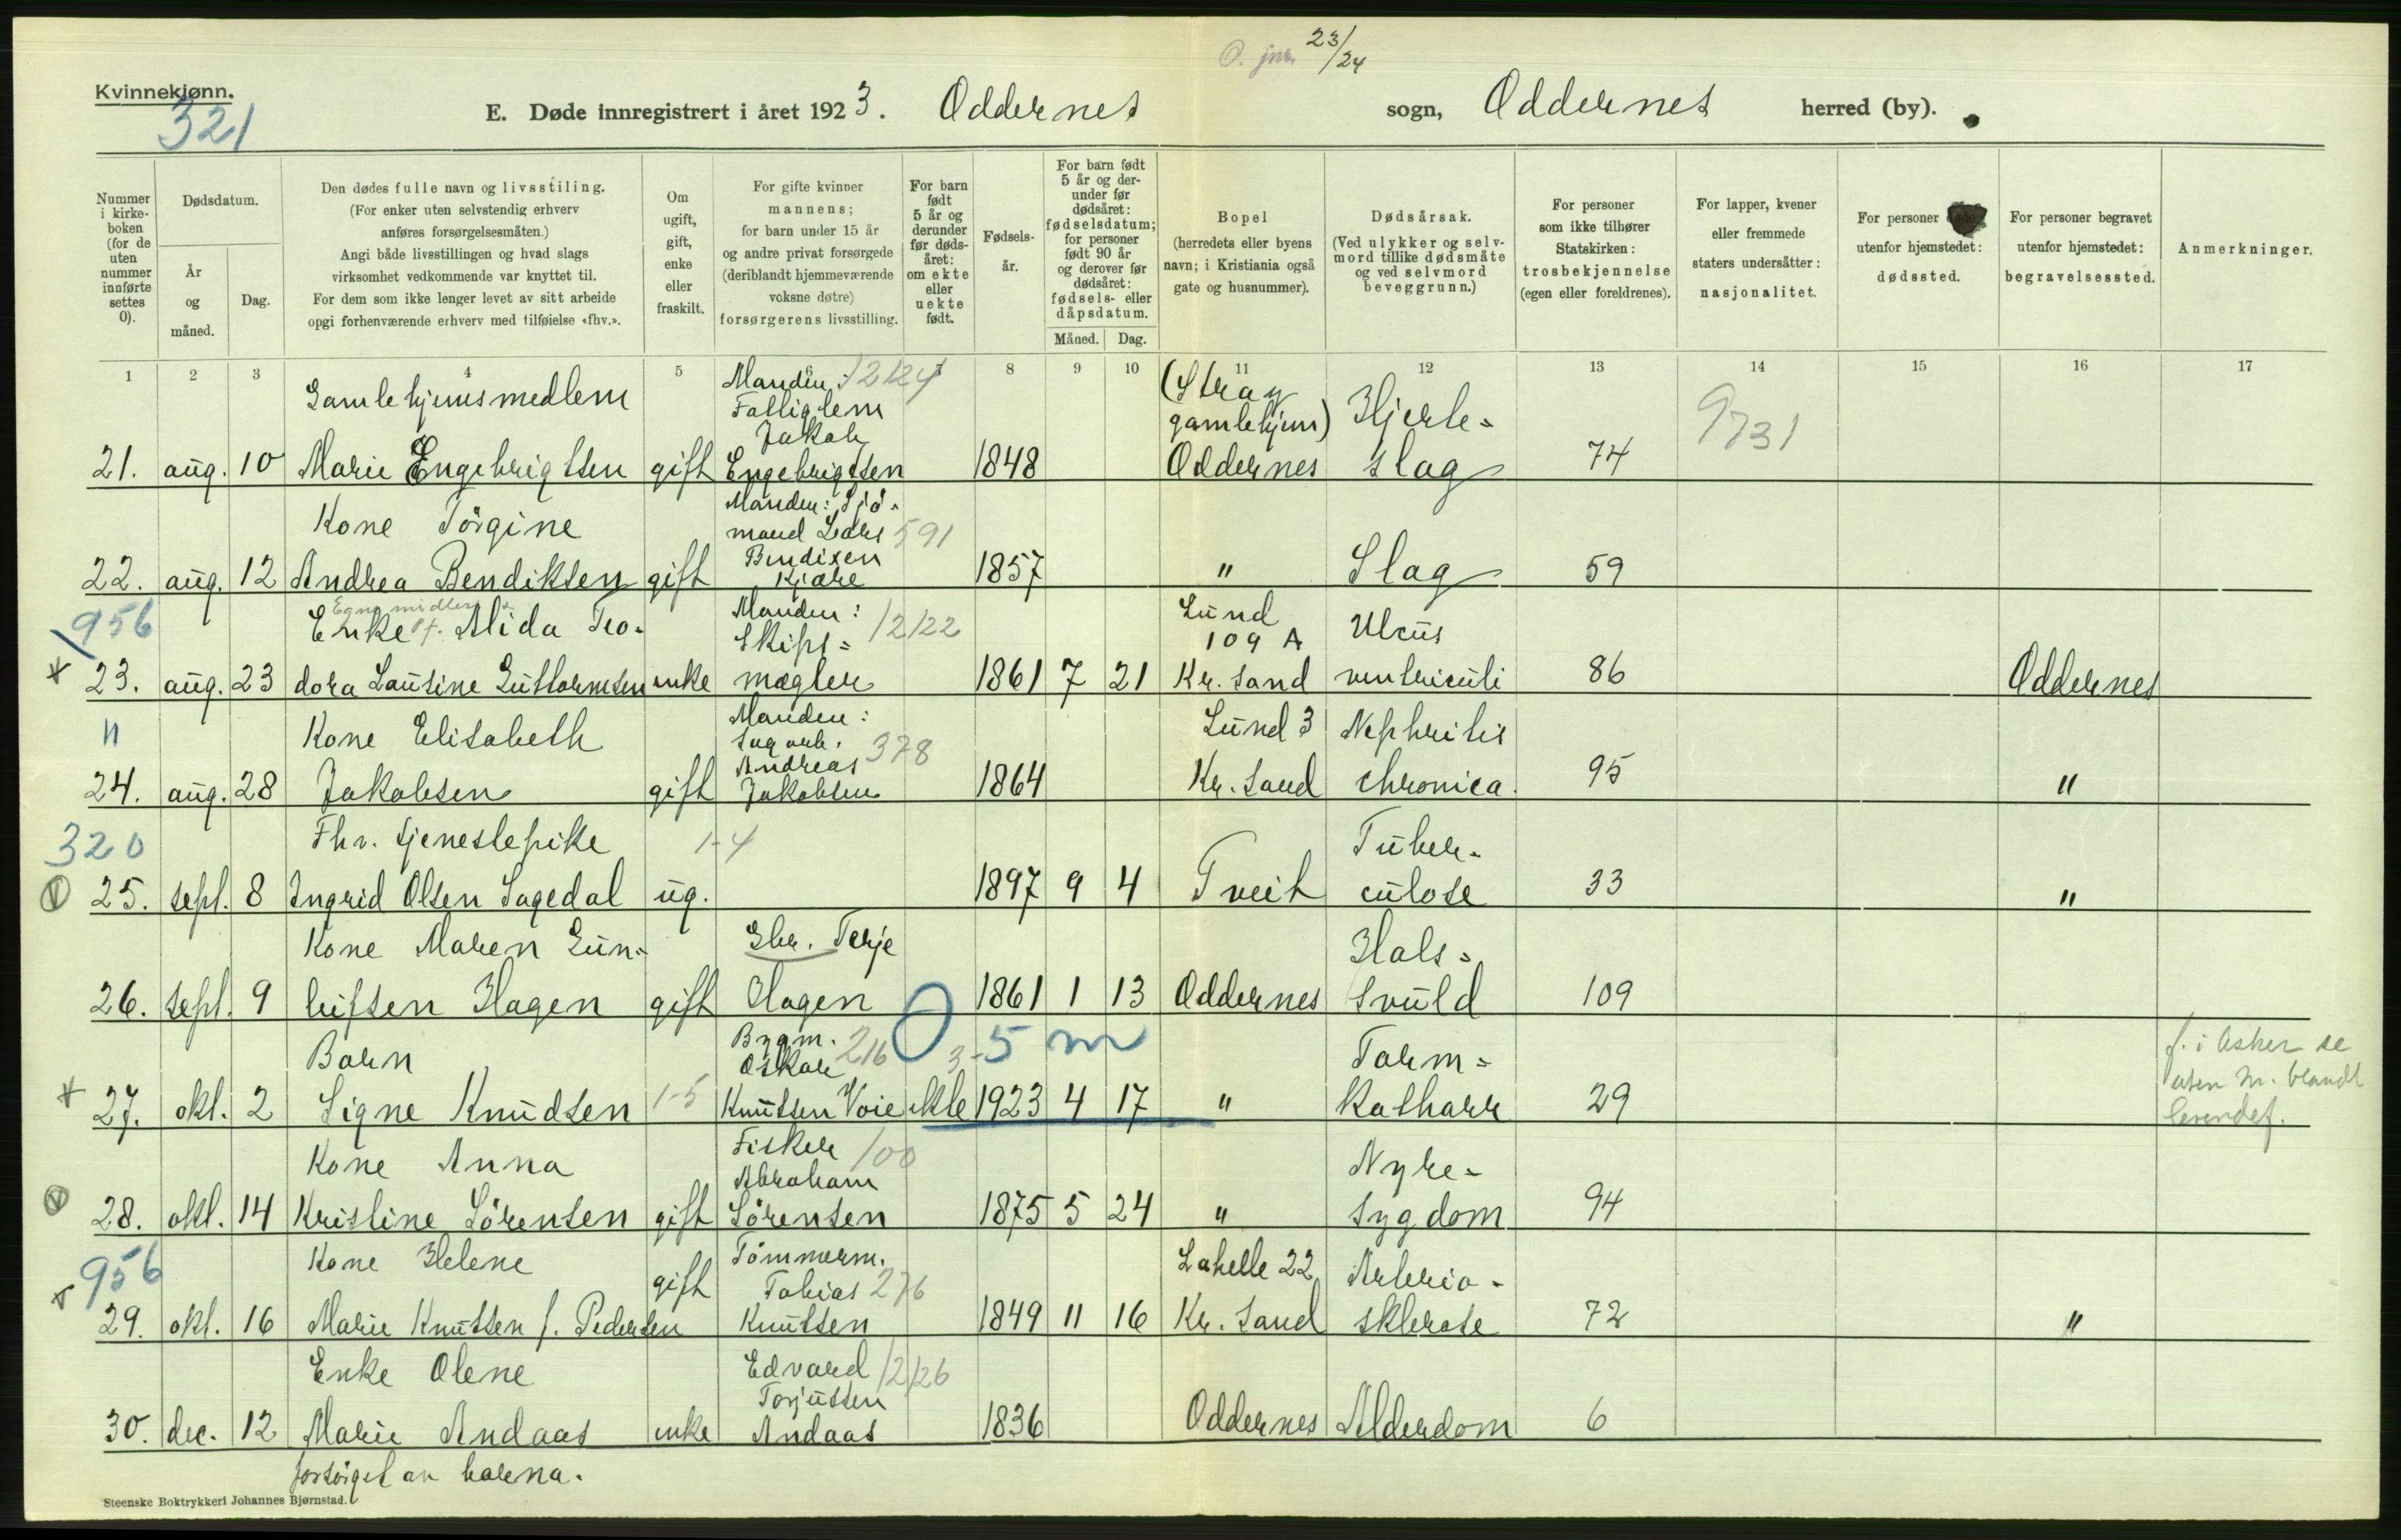 23/24
Kvinnekjønn.
321
E. Døde innregistrert i året 1923. Oddernes sogn, Oddernes herred (by).
Nummer i kirke-boken (for de uten nummer innførte settes 0).
Dødsdatum.
År og måned.
Dag.
Den dødes fulle navn og livsstiling.
(For enker uten selvstendig erhverv
anføres forsørgelsesmåten.)
Angi både livsstillingen og hvad slags
virksomhet vedkommende var knyttet til.
For dem som ikke lenger levet av sitt arbeide
opgi forhenværende erhverv med tilføielse «fhv.».
Om ugift, gift, enke eller fraskilt.
For gifte kvinner
mannens;
for barn under 15 år
og andre privat forsørgede
(deriblandt hjemmeværende
voksne døtre)
forsørgerens livsstilling.
For barn født 5 år og derunder før døds-året: om ekte eller uekte født.
Fødsels-år.
For barn født 5 år og der-under før dødsåret: fødselsdatum; for personer født 90 år og derover før dødsåret: fødsels- eller dåpsdatum.
Måned. Dag.
Bopel
(herredets eller byens
navn; i Kristiania også
gate og husnummer).
Dødsårsak.
(Ved ulykker og selv-
mord tillike dødsmåte
og ved selvmord
beveggrunn.)
For personer
som ikke tilhører
Statskirken:
trosbekjennelse
(egen eller foreldrenes).
For lapper, kvener
eller fremmede
staters undersåtter:
nasjonalitet.
For personer
utenfor hjemstedet:
dødssted.
For personer begravet
utenfor hjemstedet:
begravelsessted.
Anmerkninger.
1 2 3 4 5 6 7 8 9 10 11 12 13 14 15 16 17
Gamlehjemsmedlem Manden: 12124 (Stray
Fattiglem gamlehjem) Hjerte-
Jakob 9731
21. aug. 10 Marie Engebrigtsen gift Engebrigtsen 1848 Oddernes slag 74
Kone Törgine Manden: Sjö-
mand Lars 591
Bendixen
22. aug. 12 Andrea Bendiksen gift Kjære 1857 " Slag 59
956 Egne midler
Enke f. Alida Teo- Manden: Skips- 12122 Lund 109 A Ulcus
23. aug. 23 dora Lausine Guttormsen enke mægler 1861 7 21 Kr. sand ventriculi 86 Oddernes
" Kone Elisabeth Manden: Sagarb. Andreas 378 Lund 3 Nephritis
24. aug. 28 Jakobsen gift Jakobsen 1864 Kr. sand chronica. 95 "
320 Fhv. tjenestepike 1-4 Tuber-
25. sept. 8 Ingrid Olsen Sagedal ug. 1897 9 4 Tveit culose 33 "
Kone Maren Gun- Gbr. Terje Hals-
26. sept. 9 leifsen Hagen gift Hagen 1861 1 13 Oddernes svuld 109
Barn Bygm. Oskar 216 3-5 m Tarm-
27. okt. 2 Signe Knudsen 1-5 Knutsen Voie ekte 1923 4 17 " Katharr 29
f. i Asker se
uten m. blandt
levendef.
Kone Anna Fisker 100 Abraham Nyre-
28. okt. 14 Kristine Sörensen gift Sörensen 1875 5 24 " sygdom 94
956 Kone Helene gift Tömmerm. Tobias 276 Lahelle 22 Arterio-
29. okt. 16 Marie Knutsen f. Pedersen Knutsen 1849 11 16 Kr. sand sklerose 72 "
Enke Olene Edvard 12126 Torjussen
30. dec. 12 Marie Andaas enke Andaas 1836 Oddernes Alderdom 6
forsörget av barna.
Steenske Boktrykkeri Johannes Bjørnstad.